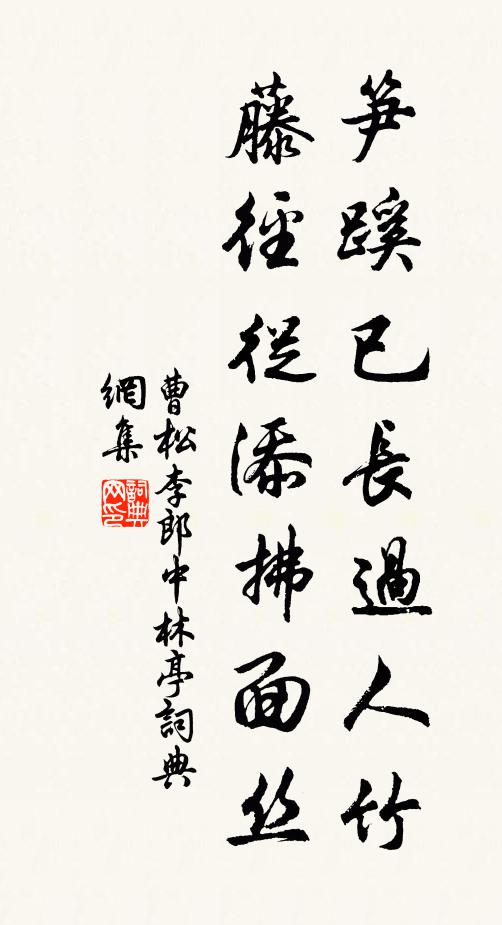 笋蹊已長過人竹
藤徑從添拂面丝
曹松李郎中林亭詞典
網集
詞典
网印